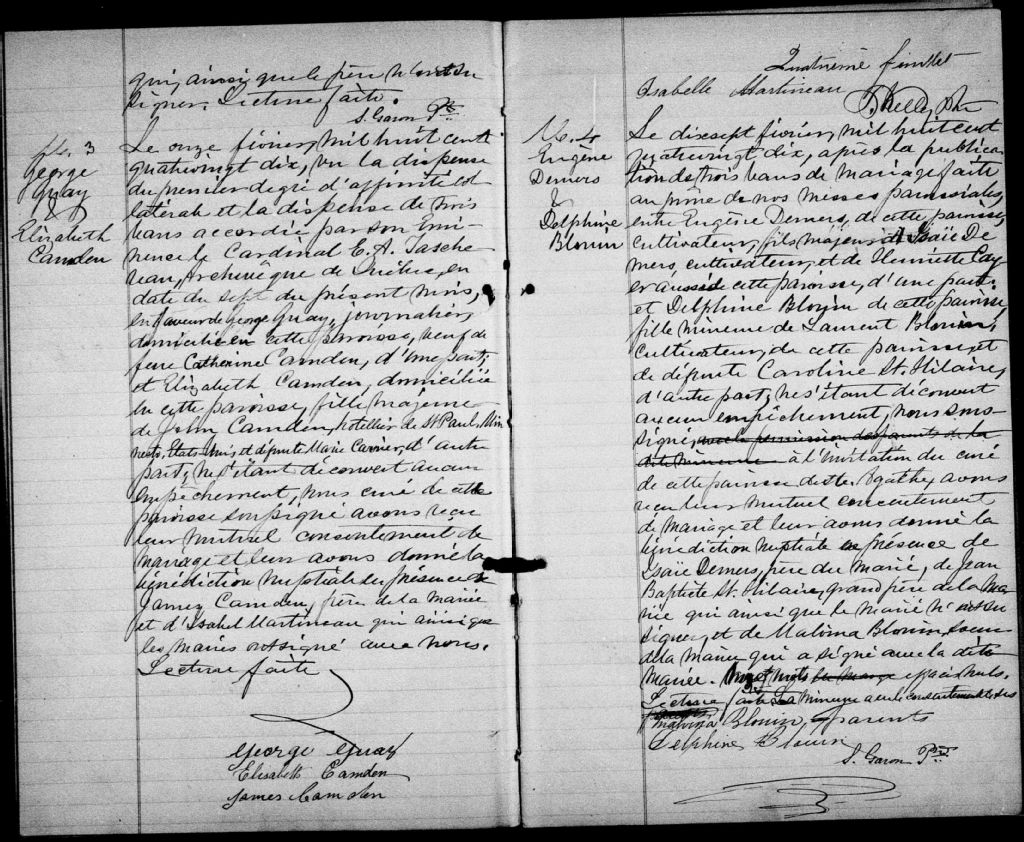 qui, ainsi que le père n'ont su
signer. Lecture faite.
S. Garon Ptre
No. 3
George
Guay
&
Elizabeth
Camden
Le onze février, mil huit cent
quatrevingt dix, vu la dispense
du premier degré d'affinité col
latérale et la dispense de trois
bans accordée par son Emi-
nence le Cardinal E. A. Tasche-
reau, Archevêque de Québec, en
date du sept du présent mois,
en faveur de George Guay, journalier,
domicilié en cette paroisse, veuf de
feue Catherine Camden, d'une part;
et Elizabeth Camden, domiciliée
en cette paroisse, fille majeure
de John Camden, hotellier de St Paul, Min
nesota, Etats-Unis, et de défunte Marie Carrier, d'autre
part; ne s'étant découvert aucun
empêchement, nous curé de cette
paroisse soussigné avons reçu
leur mutuel consentement de
mariage et leur avons donné la
bénédiction nuptiale en présence de
James Camden, frère de la mariée
et d'Isabel Martineau qui ainsi que
les mariés ont signé avec nous.
Lecture faite
George Guay
Elisabeth Camden
James Camden
Quatrième feuillet
Isabelle Martineau
No. 4
Eugène
Demers
&
Delphine
Blouin
Le dixsept février, mil huit cent
quatrevingt dix, après la publica
tion de trois bans de mariage faite
au prône de nos messes paroissiales,
entre Eugène Demers, de cette paroisse,
cultivateur, fils majeur d'Isaïe De
mers, cultivateur, et de Henriette
aussi de cette paroisse, d'une part;
et Delphine Blouin de cette paroisse
fille mineure de Laurent Blouin,
cultivateur, de cette paroisse, et
de défunte Caroline St. Hilaire,
d'autre part; ne s'étant découvert
aucun empêchement, nous sous-
signé, avec la permission des parents de la
dite mineure à l'invitation du curé
de cette paroisse de Ste. Agathe, avons
reçu leur mutuel consentement
de mariage et leur avons donné la
bénédiction nuptiale en présence de
Isaïe Demers, père du marié, de Jean
Baptiste St. Hilaire, grand père de la ma
riée qui ainsi que le marié n'ont su
signer, et de Malvina Blouin, soeur
de la mariée qui a signé avec la dite
mariée. mots en marge effacés nuls.
Lecture faite La mineure a eu le consentement de ses
Malvina Blouin, parents
Delphine Blouin
S. Garon Ptre